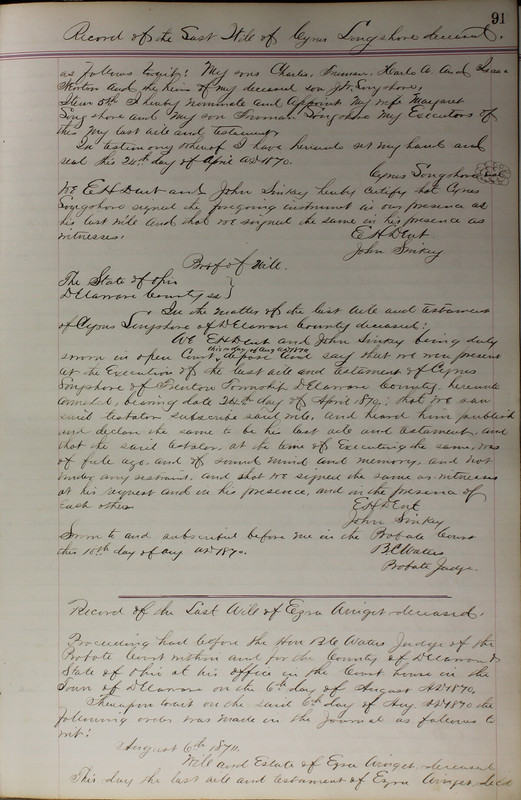 91
Record of the Last Will of Cyrus Longshore deceased.
as follows towit: My sons Charles, Truman, Karlo A. And
Norton And the heirs of my deceased son J.W. Longshore,
Item 5th I hereby nominate and Appoint My wife Margaret
Longshore and My son Truman Longshore My Executors of
this My last will and testament,
In testimony whereof I have hereunto set my hand and
seal this 24th day of April AD 1870.
Cyrus Longshore seal
We E H Dent and John Sinkey hereby certify that Cyrus
Longshore signed the foregoing instrument in our presence as
his last will and that we signed the same in his presence as
witnesses.
E H Dent
John Sinkey
Proof of Will.
The State of Ohio
Delaware County ss
In the matter of the last will and testament
of Cyrus Longshore of Delaware County deceased:
We E H Dent and John Sinkey being duly
this day of Aug AD 1870
sworn in open Court, depose and say that we were present
at the Execution of the last will and testament of Cyrus
Longshore of Township Delaware County, hereunto
annexed, bearing date 24th day of April 1870: that we saw
said testator subscribe said will, and heard him publish
and declare the same to be his last will and testament, and
that the said testator, at the time of Executing the same, was
of full age, and of sound mind and memory, and not
under any restraint, and that we signed the same as witnesses
at his request and in his presence, and in the presence of
Each other
E H Dent
John Sinkey
Sworn to and subscribed before me in the Probate Court
this 10th day of Aug AD 1870.
B C Waters
Probate Judge.
Record of the Last Will of Ezra Winget deceased.
Proceeding had before the Hon B C Waters Judge of the
Probate Court within and for the County of Delaware &
State of Ohio at his Office in the Court house in the
Town of Delaware on the 6th day of August AD 1870.
Thereupon towit on the said 6th day of Aug. AD 1870 the
following order was made in the Journal as follows to
wit:
August 6th 1870.
Will and Estate of Ezra Winget, deceased
This day the last will and testament of Ezra Winget, Dec'd